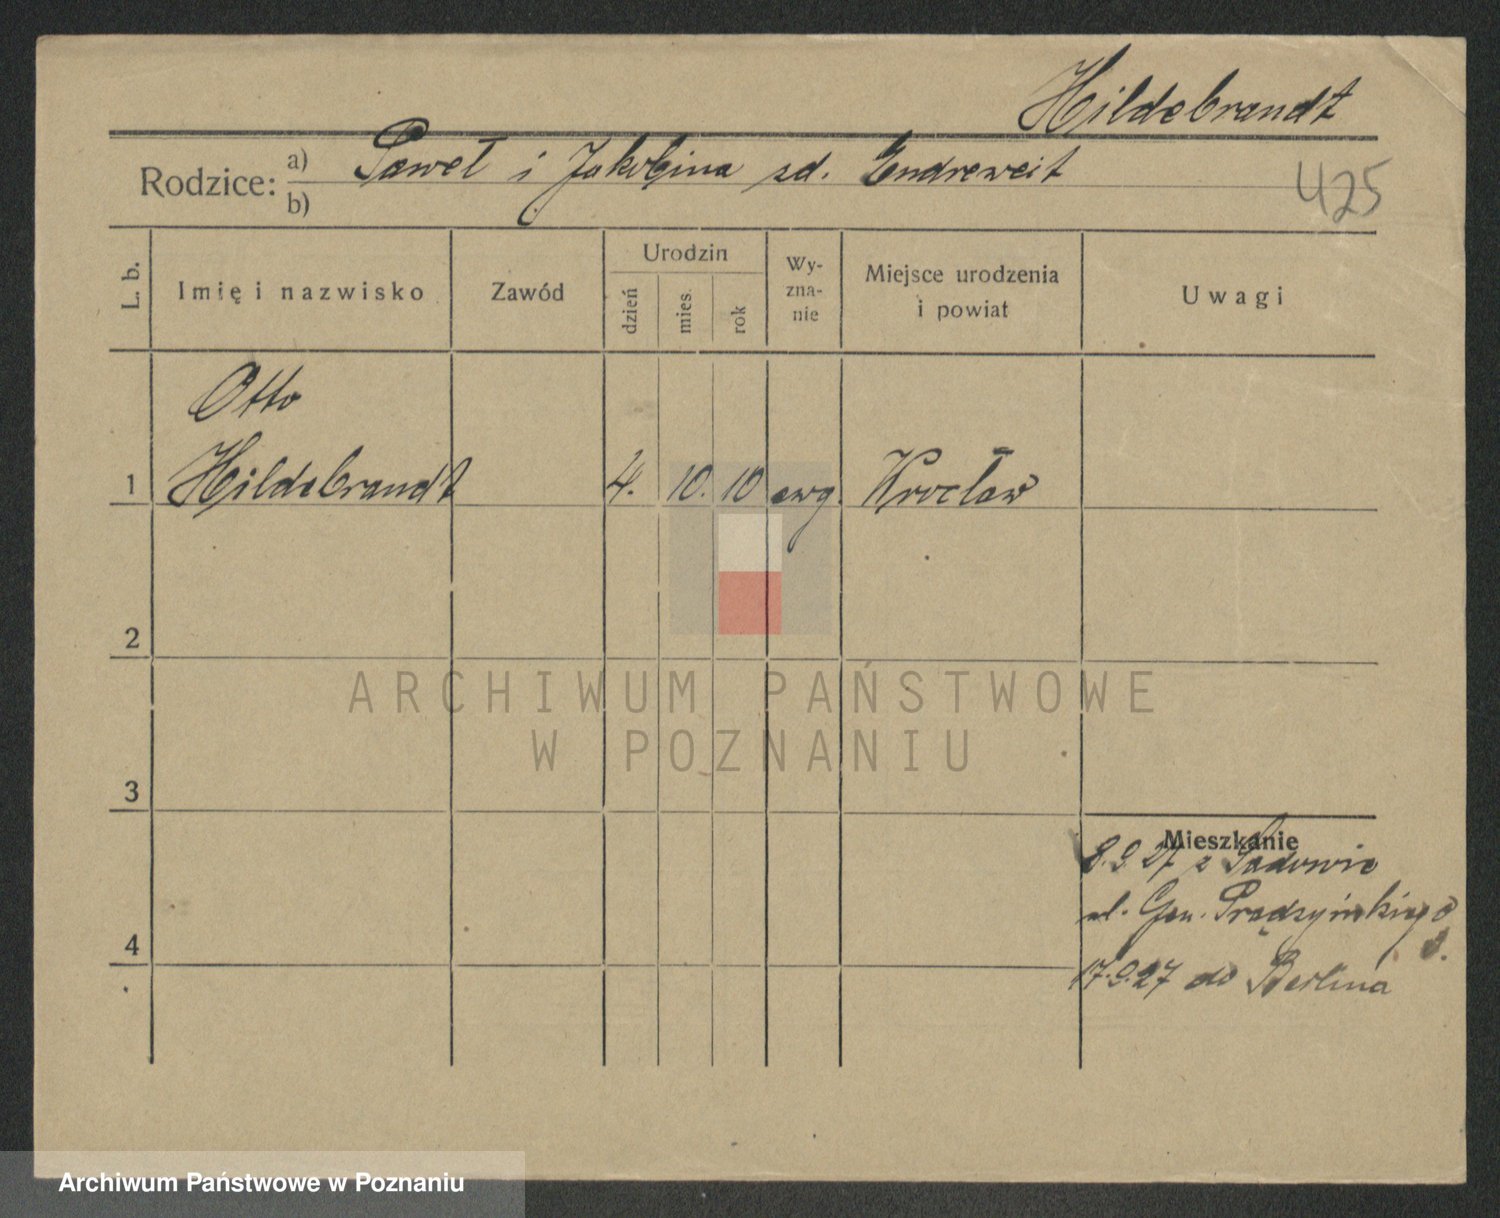 Hildebrandt
Rodzice: a) Paweł i Jakobina zd. Endreweit
b)
425
L. b.
Imię i nazwisko
Zawód
Urodzin
dzień
mies.
rok
Wy-
zna-
nie
Miejsce urodzenia
i powiat
Uwagi
Otto
1 Hildebrandt 4. 10. 10 ewg. Wrocław
2
ARCHIWUM PAŃSTWOWE
W POZNANIU
3
Mieszkanie
8.9.27 z
ul. Gen. Prądzyńskiego
4
17.9.27 do Berlina
Archiwum Państwowe w Poznaniu